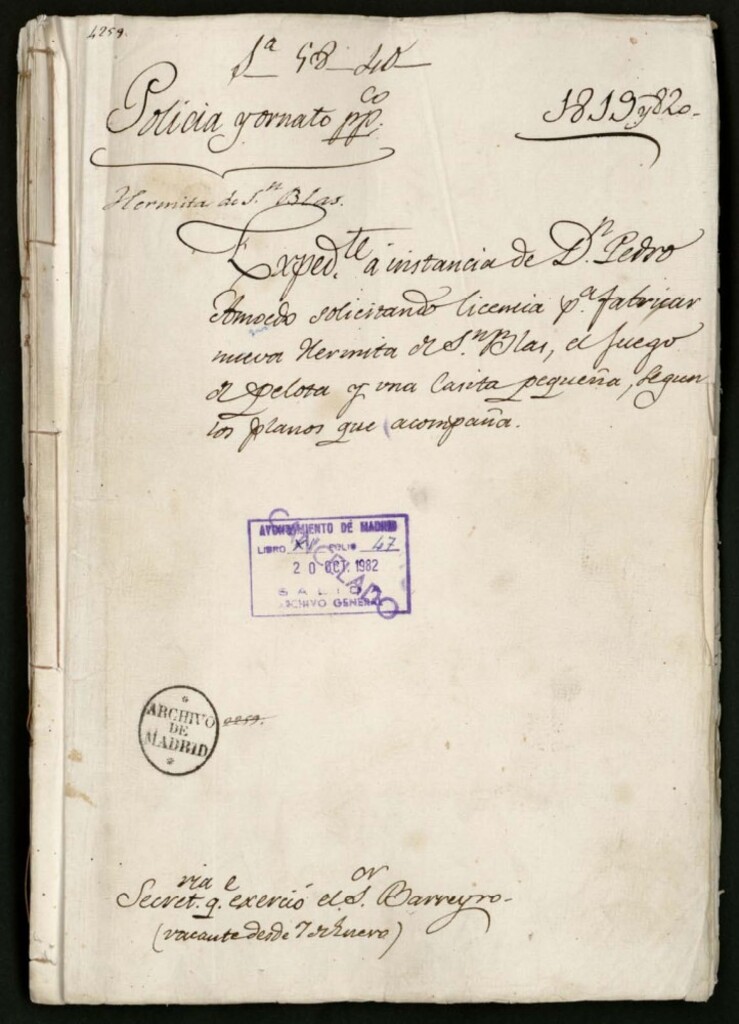 4259.
1ª 58 40
Policia y ornato ppco.
1819 y 820.
Hermita de S.n Blas.
Exped.te á instancia de D.n Pedro
Amoedo solicitando licencia p.a fabricar
nueva Hermita de S.n Blas, el fuego
de pelota y una Casita pequeña, segun
los planos que acompaña.
AYUNTAMIENTO DE MADRID
LIBRO XV FOLIO 47
20 OCT. 1982
SALIO
ARCHIVO GENERAL
CANCELADO
ARCHIVO
DE
MADRID
Secret.ria q.e exerció el S.or Barreyro-
(vacante desde 7 de Enero)